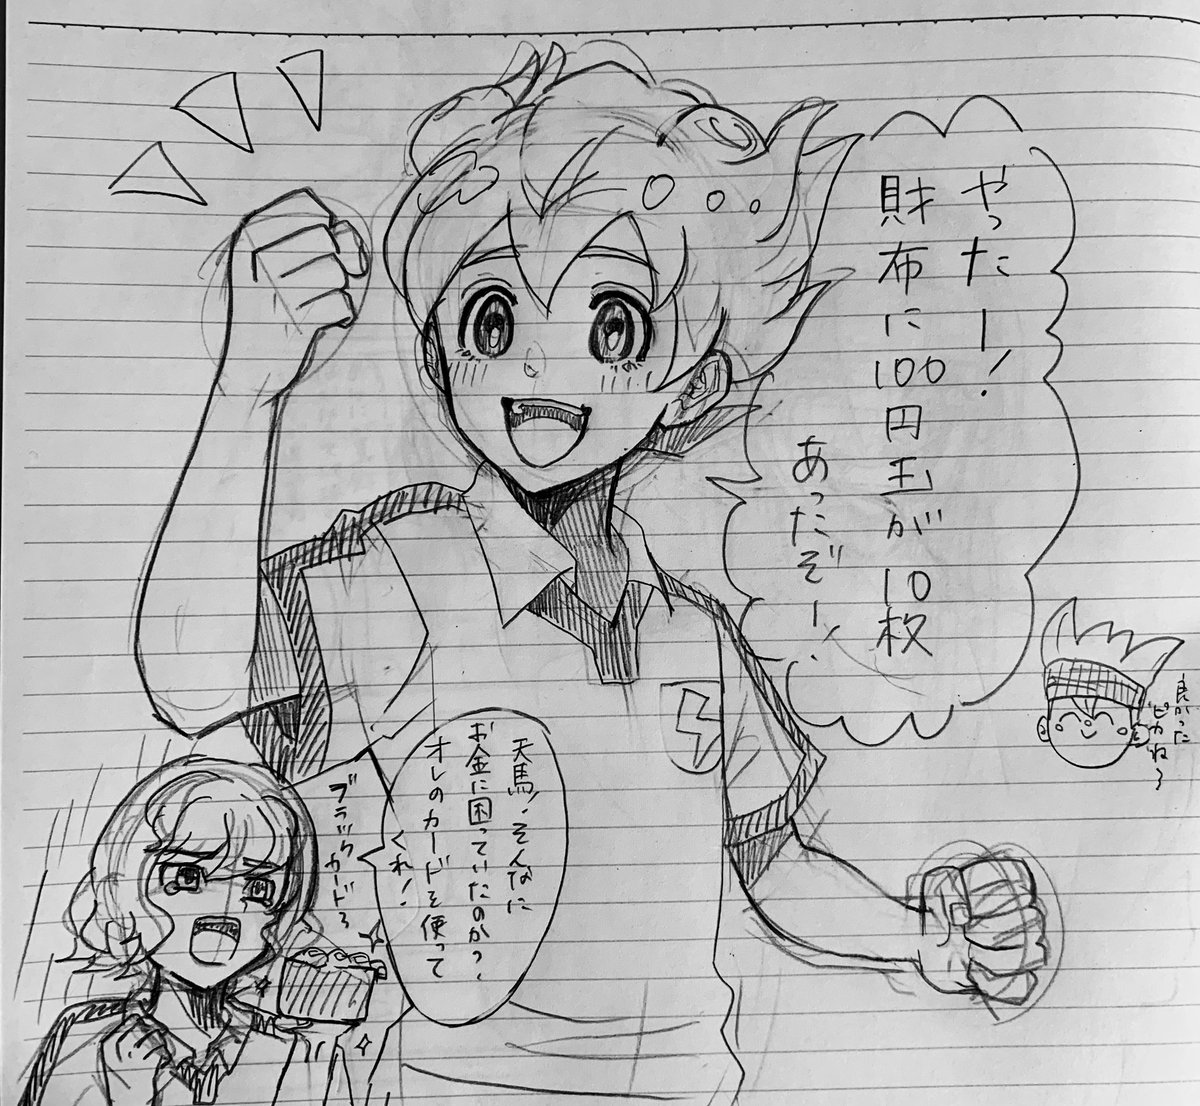 やったー!
財布に100円玉が10枚
あったぞー!
良かった
ピカね〜
天馬!そんなに
お金に困っていたのか?
オレのカードを使って
くれ!
ブラックカード〜